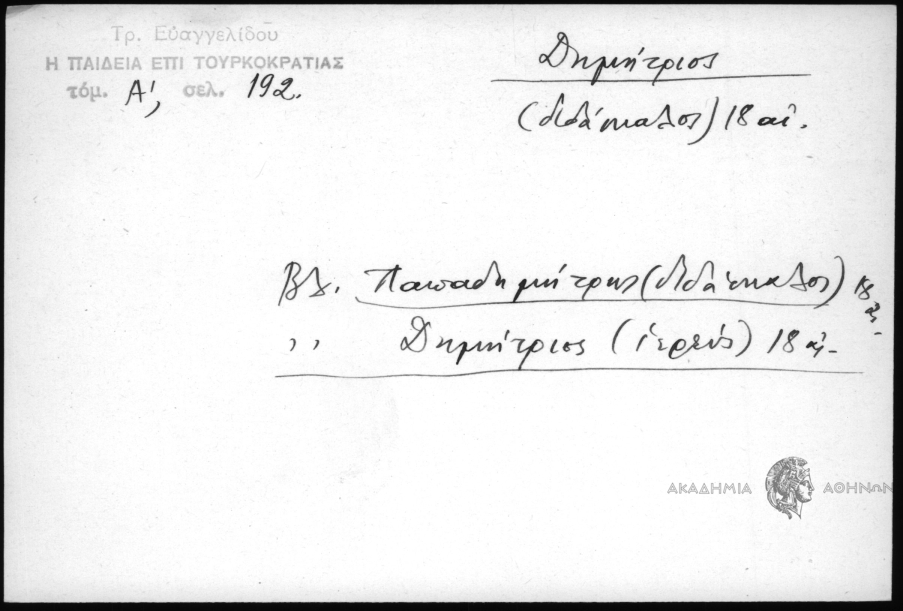 Τρ. Εὐαγγελίδου
Η ΠΑΙΔΕΙΑ ΕΠΙ ΤΟΥΡΚΟΚΡΑΤΙΑΣ
τόμ. Α', σελ. 192.
Δημήτριος
(διδάσκαλος) 18 αἰ.
Βλ. Παπαδημήτρης (διδάσκαλος) 18 αἰ.
,, Δημήτριος (ἱερεύς) 18 αἰ.
ΑΚΑΔΗΜΙΑ ΑΘΗΝΩΝ